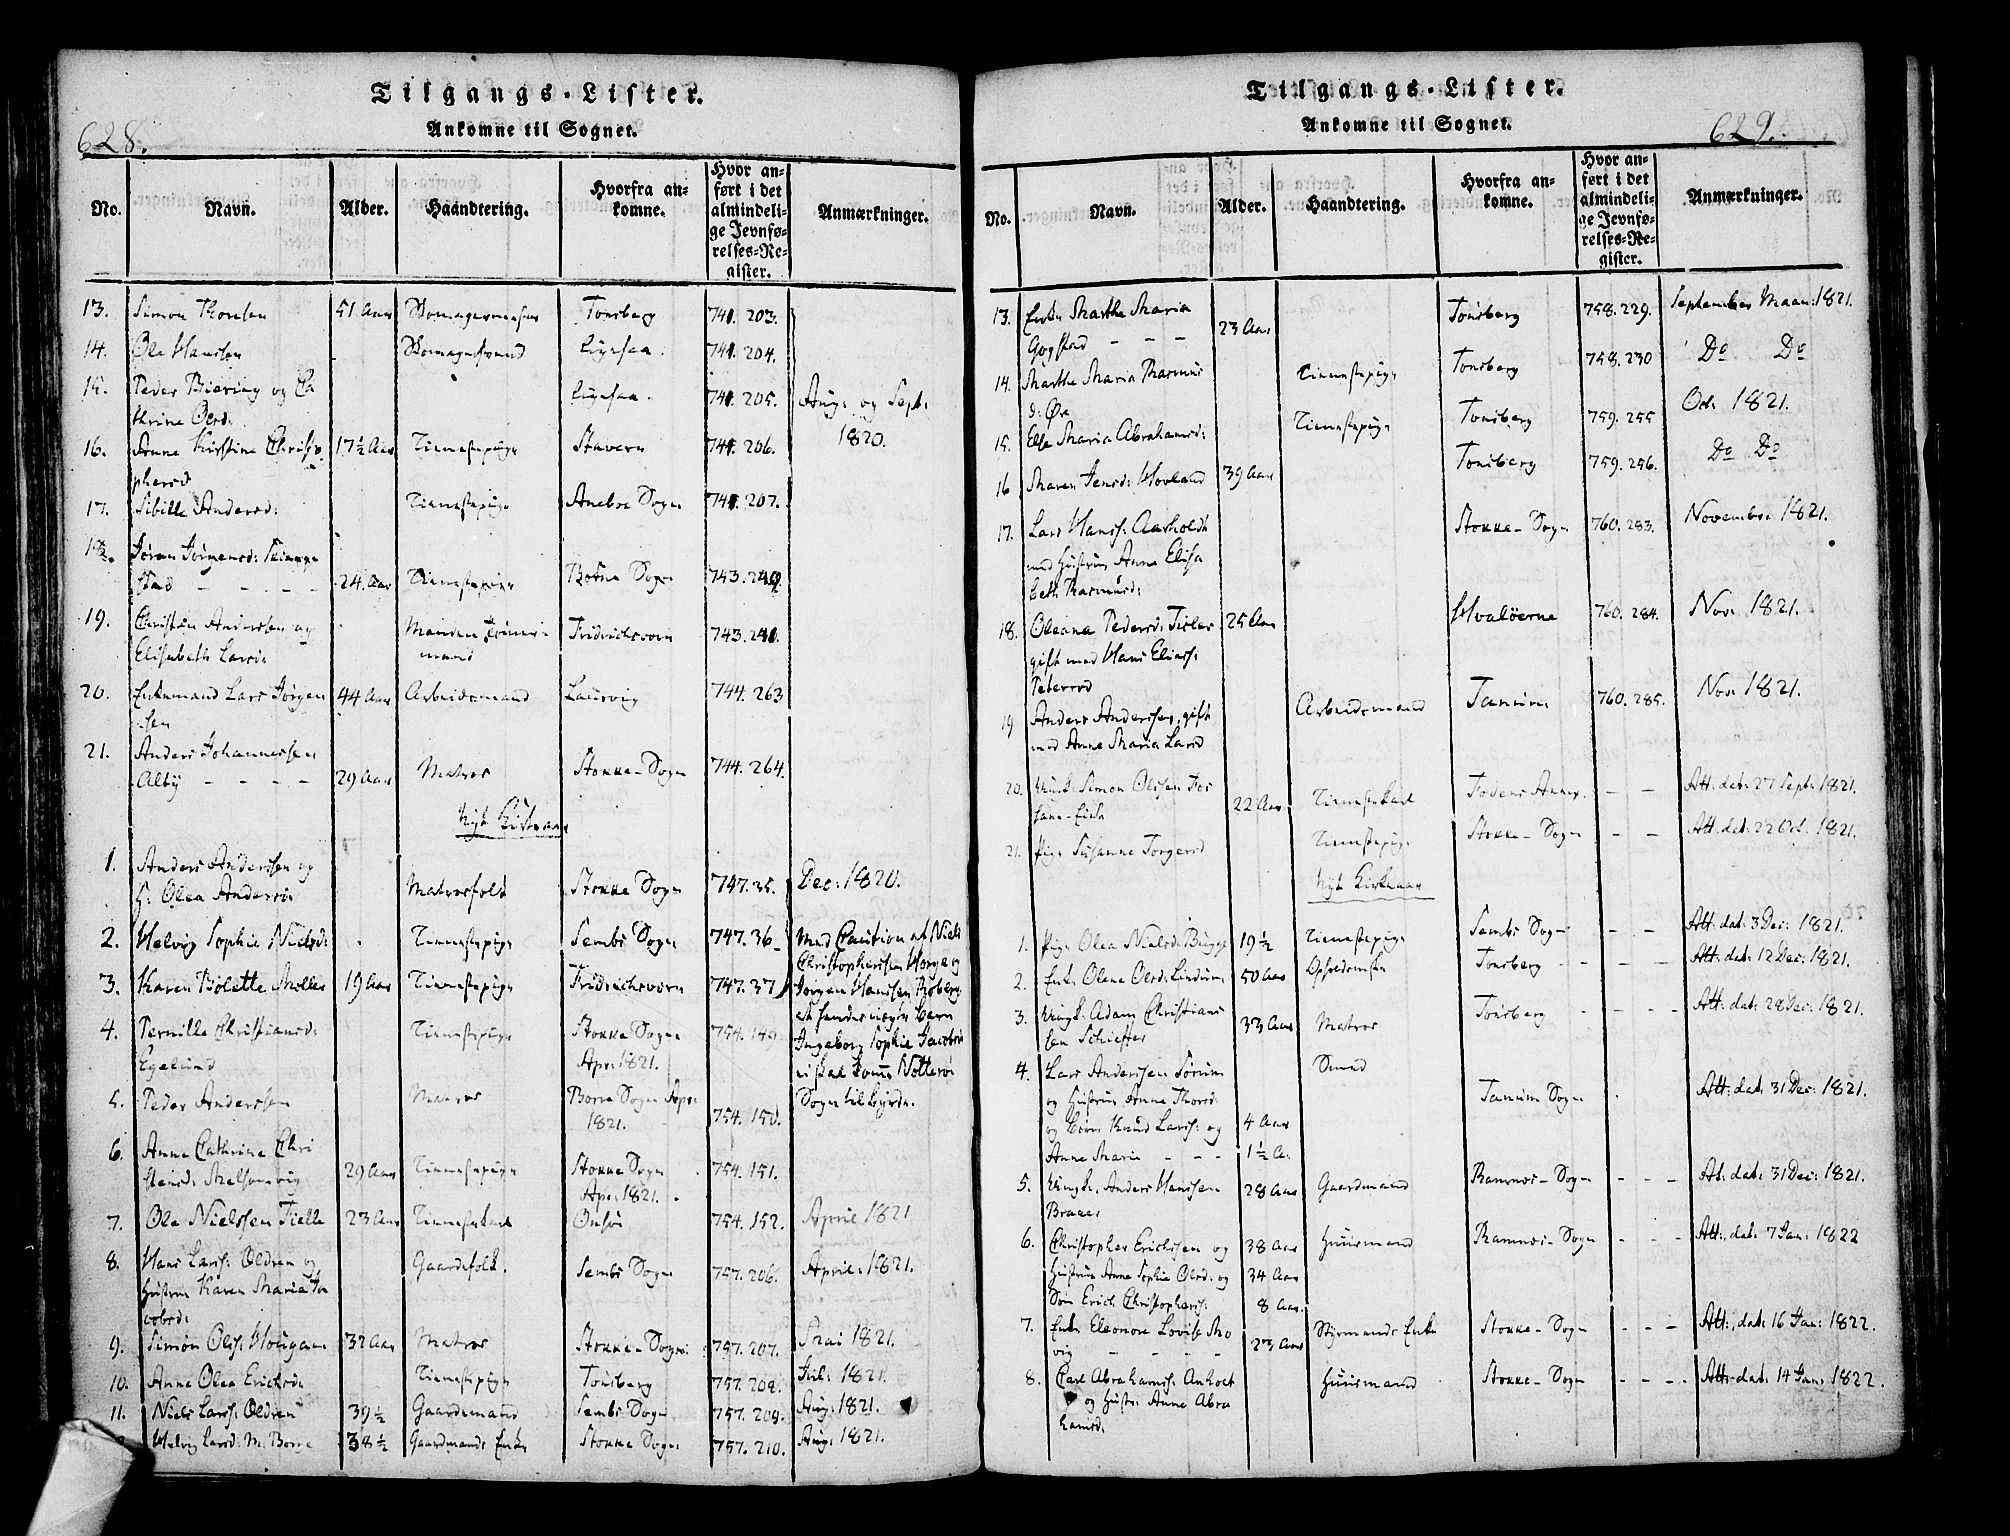 628.
Tilgangs-Lister.
Ankomne til Sognet.
No. Navn. Alder. Haandtering. Hvorfra ankomne. Hvor anført i det almindelige Jevnførelses-Register. Anmærkninger.
13. Simon Thoresen 51 Aar Tønsberg 741. 203.
14. Ole Hansen 741. 204.
15. Peder Biering og Ca
thrine Olsd: 741. 205. Aug: og Sept:
1820.
16. Anne Kirstine Christo
phersd 17½ Aar Tienestepige Stavern 741. 206.
17. Sibille Andersd: Tienestepige Aneboe Sogn 741. 207.
18. Jøran Jørgensd:
stad - - - - 24 Aar Tienestepige Botne Sogn 743.
19. Christen Andersen og
Elisabeth Larsd: Manden Tømmer
mand Fridrichsværn 743.
20. Enkemand Lars Jørgen
sen 44 Aar Arbeidsmand Laurvig 744. 263
21. Anders Johannessen
Alby - - - - 29 Aar Matros Stokke-Sogn 744. 264.
Nyt Kirkeaar
1. Anders Anderssen og
H: Olea Andersd: Matrosfolk Stokke Sogn 747. 35. Dec: 1820.
2. Helvig Sophie Nielsd: Tienestepige Sembs Sogn 747. 36 Med Caution af Niels
Christophersen Horge og
3. Karen Bolette Møller 19 Aar Tienestepige Fridrichsværn 747. 37 Jørgen Hansen
at hendes uægte Barn
4. Pernille Christiansd:
Egelund Tienestepige Stokke Sogn
Apr: 1821. 754. 149 Ingeborg Sophie Jacobsd:
ei skal komme Nøtterøe
5. Peder Anderssen Matros Borre Sogn Apr:
1821. 754. 150. Sogn til Byrde.
6. Anne Cathrine Chri
stensd: Melsomvig 29 Aar Tienestepige Stokke Sogn
Apr: 1821. 754. 151.
7. Ole Nielssen Tielle 23 Aar Tienestekarl Onsøe 754. 152. April 1821
8. Hans Larss: Oldren og
Hustrue Karen Maria Ja
cobsd: Gaardsfolk. Sembs Sogn 757. 206. April: 1821.
9. Simon Olss: Holtgam 32 Aar Matros Stokke-Sogn 757. 207. Mai 1821.
10. Anne Olea Ericksd: Tienestepige Tønsberg 757. 208. Jul: 1821.
11. Niels Larss: Oldren 39½ Gaardmand Sembs Sogn 757. 209. Aug: 1821.
Helvig Larsd: M. Borge 38½ Gaardmands Enke Stokke Sogn 757. 210. Aug: 1821.
629.
Tilgangs-Lister.
Ankomne til Sognet.
No. Navn. Alder. Haandtering. Hvorfra ankomne. Hvor anført i det almindelige Jevnførelses-Register. Anmærkninger.
13. Enke Marthe Maria
Gogstad - - - 23 Aar Tønsberg 758. 229. September Maan: 1821.
14. Marthe Maria Rasmus
d: Øre Tienestepige Tønsberg 758. 230 Do Do
15. Else Maria Abrahamsd: Tienestepige Tønsberg 759. 255 Oct: 1821.
16 Maren Jensd: Hovland 39 Aar Tønsberg 759. 256. Do Do
17. Lars Hanss: Aarholdt
med Hustrue Anne Elisa
beth Rasmusd: Stokke-Sogn 760. 283. November 1821.
18. Oleana Pedersd: Tisler
gift med Hans Eliass:
Peterrød 25 Aar Hvaløerne 760. 284. Nov: 1821.
19 Anders Anderssen, gift
med Anne Maria Larsd Arbeidsmand Tanum 760. 285. Nov: 1821.
20. Ungk: Simon Olssen
22 Aar Tienestekarl - - Att: dat: 27 Sept: 1821.
21. Pige Susanne Torgersd Tienestepige Stokke-Sogn - - Att: dat: 22 Oct: 1821.
Nyt Kirkeaar
1. Pige Olea Nielsd: Bugge 19½ Tienestepige Sembs Sogn - - Att: dat: 3 Dec: 1821.
2. Enke Olene Olsd: Lindum 50 Aar Tønsberg - - - - Att: dat: 12 Dec: 1821.
3. Ungk: Adam Christians
sen Schieffer 33 Aar Matros Tønsberg - - - - Att: dat: 28 Dec: 1821.
4. Lars Anderssen Sørum
og Hustrue Anne Thoresd:
og Børn Knud Larss: og 4 Aar
Anne Maria - - - 1½ A: Smed Tanum Sogn Att: dat: 31 Dec: 1821.
5. Ungk: Anders Hanssen
Bræker 28 Aar Gaardmand Ramnes-Sogn - - - Att: dat: 31 Dec: 1821.
6. Christopher Ericksen og 38 Aar
Hustrue Anne Sophie Olsd: og 34 Aar
Søn Erich Christophers: 8 Aar. Huusmand Ramnes-Sogn - - - Att:, dat: 7 Jan: 1822
7. Enke Eleonore Lovise Mo
vig - - - - 23 Aar Styrmands Enke Stokke-Sogn - - - Att:, dat: 16 Jan: 1822.
8. Carl Abrahamss: Anholt
og Hustr: Anne Abra
hamsd: Huusmand Stokke-Sogn - - - Att: dat: 14 Jan: 1822.